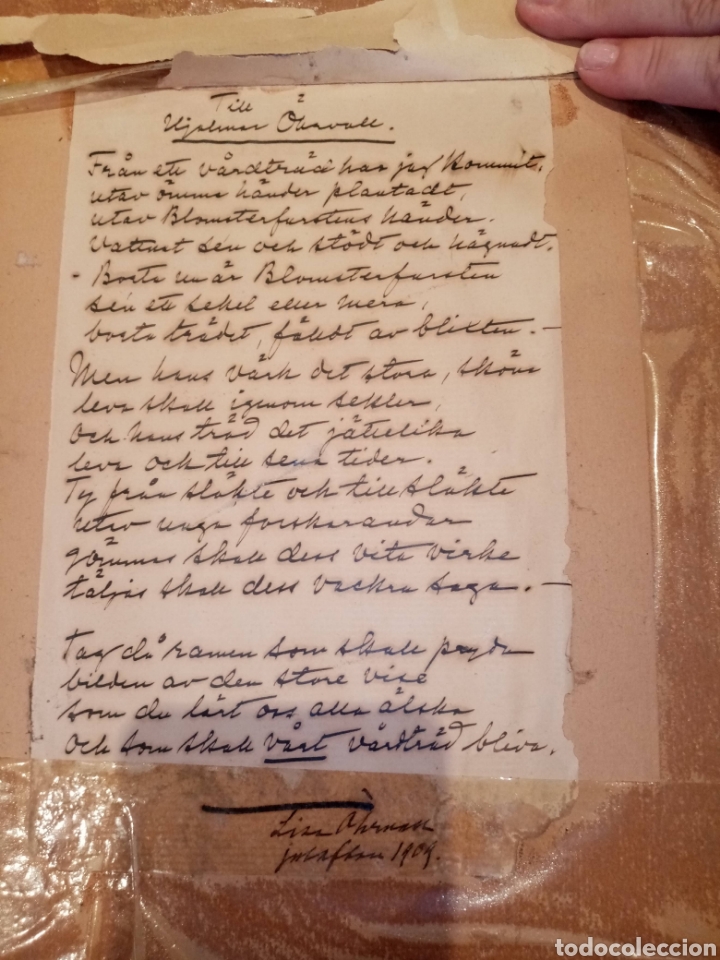 Till
Hjalmar Åkavall.
Från ett vårdträd har jag kommit,
utav ömma händer plantadt,
utav Blomsterfurstens händer.
Vattnat sen och stödt och hägnadt.
- Borta nu är Blomsterfursten
sen ett sekel eller mera,
borta trädet, fäldt av blixten. -
Men hans värk det stora, sköna
leva skall igenom sekler,
Och hans träd det jättelika
leva och till sena tider.
Ty från släkte och till släkte
utav unga forskarandar
gömmas skall dess vita virke
täljas skall dess vackra saga. -
Tag då ramen som skall pryda
bilden av den store vise
som du lärt oss alla älska
och som skall vårt vårdträd bliva.
Lisa Öhrman
julafton 1909.
todocoleccion